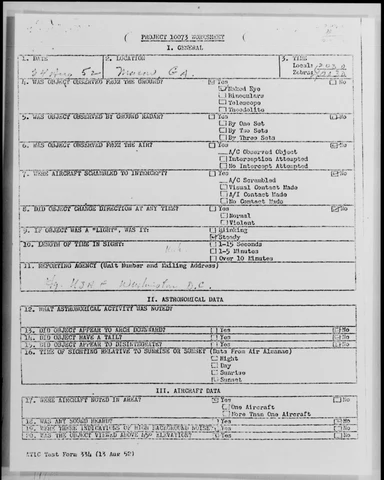 ( PROJECT 10073 WORKSHEET )
I. GENERAL
1. DATE
2. LOCATION
3. TIME
24 Aug 52
Local:
Zebra:
4. WAS OBJECT OBSERVED FROM THE GROUND? Yes No
Naked Eye
Binoculars
Telescope
Theodolite
5. WAS OBJECT OBSERVED BY GROUND RADAR? Yes No
By One Set
By Two Sets
By Three Sets
6. WAS OBJECT OBSERVED FROM THE AIR? Yes No
A/C Observed Object
Interception Attempted
No Intercept Attempted
7. WERE AIRCRAFT SCRAMBLED TO INTERCEPT? Yes No
A/C Scrambled
Visual Contact Made
A/I Contact Made
No Contact Made
8. DID OBJECT CHANGE DIRECTION AT ANY TIME? Yes No
Normal
Violent
9. IF OBJECT WAS A "LIGHT", WAS IT: Blinking
Steady
10. LENGTH OF TIME IN SIGHT: 1-15 Seconds
1-5 Minutes
Over 10 Minutes
11. REPORTING AGENCY (Unit Number and Mailing Address)
Washington D.C.
II. ASTRONOMICAL DATA
12. WHAT ASTRONOMICAL ACTIVITY WAS NOTED?
13. DID OBJECT APPEAR TO ARCH DOWNWARD? Yes No
14. DID OBJECT HAVE A TAIL? Yes No
15. DID OBJECT APPEAR TO DISINTEGRATE? Yes No
16. TIME OF SIGHTING RELATIVE TO SUNRISE OR SUNSET (Data From Air Almanac)
Night
Day
Sunrise
Sunset
III. AIRCRAFT DATA
17. WERE AIRCRAFT NOTED IN AREA? Yes No
One Aircraft
More Than One Aircraft
18. WAS ANY SOUND HEARD? Yes No
19. WERE THERE INDICATIONS OF HIGH BACKGROUND NOISE? Yes No
20. WAS THE OBJECT VIEWED ABOVE 45° ELEVATION? Yes No
ATIC Test Form 334 (13 Aug 52)